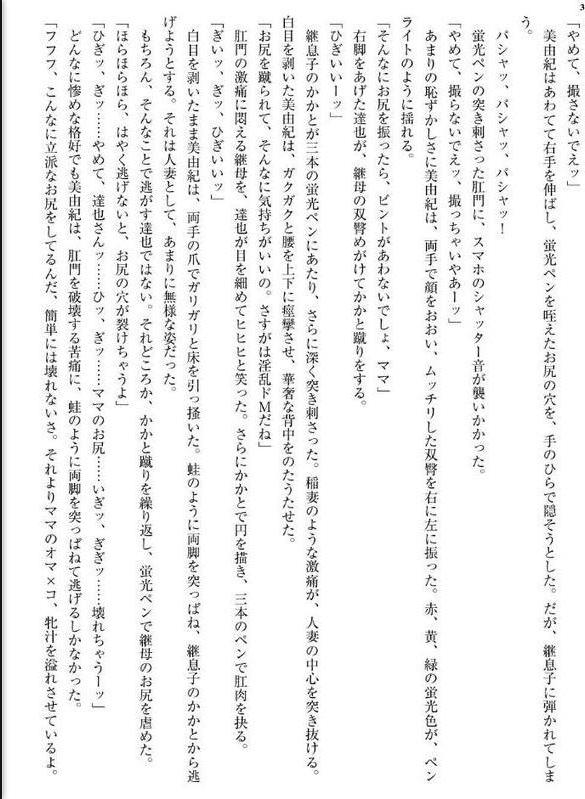 3
「やめて、撮さないでえッ」
美由紀はあわてて右手を伸ばし、蛍光ペンを咥えたお尻の穴を、手のひらで隠そうとした。だが、継息子に弾かれてしま
う。
パシャッ、パシャッ、パシャッ！
蛍光ペンの突き刺さった肛門に、スマホのシャッター音が襲いかかった。
「やめて、撮らないでえッ、撮っちゃいやあーッ」
あまりの恥ずかしさに美由紀は、両手で顔をおおい、ムッチリした双臀を右に左に振った。赤、黄、緑の蛍光色が、ペン
ライトのように揺れる。
「そんなにお尻を振ったら、ピントがあわないでしょ、ママ」
右脚をあげた達也が、継母の双臀めがけてかかと蹴りをする。
「ひぎいいーッ」
継息子のかかとが三本の蛍光ペンにあたり、さらに深く突き刺さった。稲妻のような激痛が、人妻の中心を突き抜ける。
白目を剥いた美由紀は、ガクガクと腰を上下に痙攣させ、華奢な背中をのたうたせた。
「お尻を蹴られて、そんなに気持ちがいいの。さすがは淫乱ドＭだね」
肛門の激痛に悶える継母を、達也が目を細めてヒヒヒと笑った。さらにかかとで円を描き、三本のペンで肛肉を抉る。
「ぎいッ、ぎッ、ひぎいいッ」
白目を剥いたまま美由紀は、両手の爪でガリガリと床を引っ掻いた。蛙のように両脚を突っぱね、継息子のかかとから逃
げようとする。それは人妻として、あまりに無様な姿だった。
もちろん、そんなことで逃がす達也ではない。それどころか、かかと蹴りを繰り返し、蛍光ペンで継母のお尻を虐めた。
「ほらほらほら、はやく逃げないと、お尻の穴が裂けちゃうよ」
「ひぎッ、ぎッ……やめて、達也さんッ……ひッ、ぎッ……ママのお尻……いぎッ、ぎぎッ……壊れちゃうーッ」
どんなに惨めな格好でも美由紀は、肛門を破壊する苦痛に、蛙のように両脚を突っぱねて逃げるしかなかった。
「フフフ、こんなに立派なお尻をしてるんだ、簡単には壊れないさ。それよりママのオマ×コ、牝汁を溢れさせているよ。